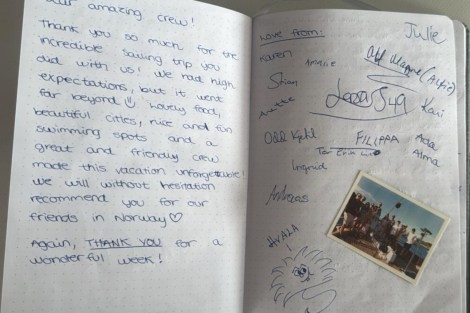 amazing crew!
Thank you so much for the
incredible sailing trip you
did with us! We had high
expectations, but it went
far beyond Lovely food,
beautiful cities, nice and fun
swimming spots and a
great and friendly crew
made this vacation unforgettable!
We will without hesitation
recommend you for our
friends in Norway♡
Again, THANK YOU for a
wonderful week!
Love from:
Julie
Karen
Kari
Odd Kjetil
FILIPPA
Ada
Alma
Ingrid
Andreas